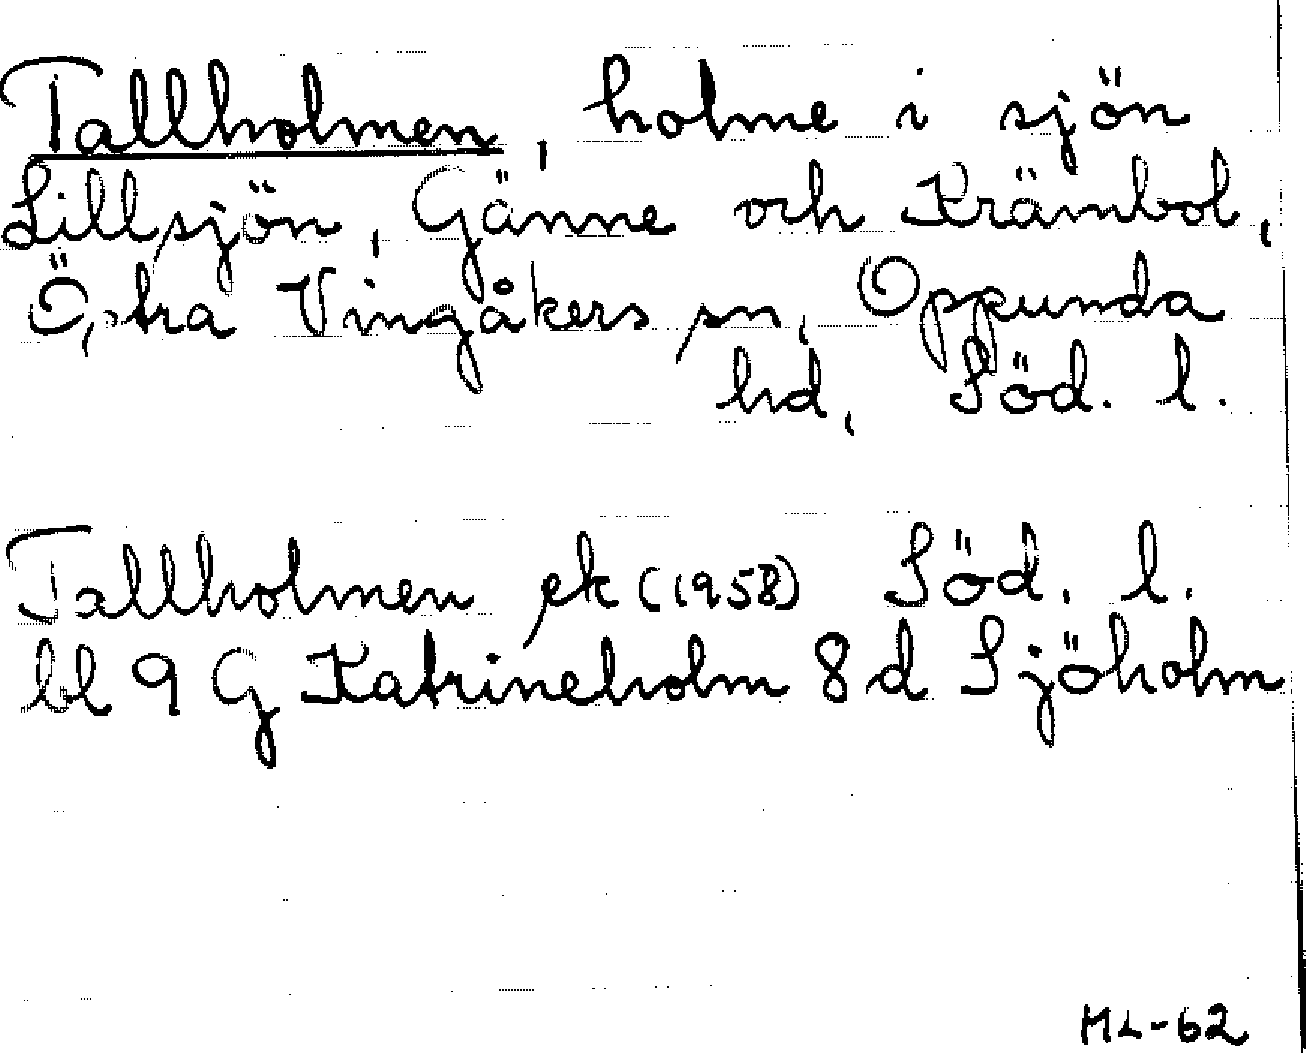 Tallholmen, holme i sjön
Lillsjön, Gänne och Krämbol,
Ö,stra Vingåkers sn, Oppunda
hd, Söd. l.
Tallholmen ek (1958) Söd. l.
bl 9 G Katrineholm 8 d Sjöholm
ML-62